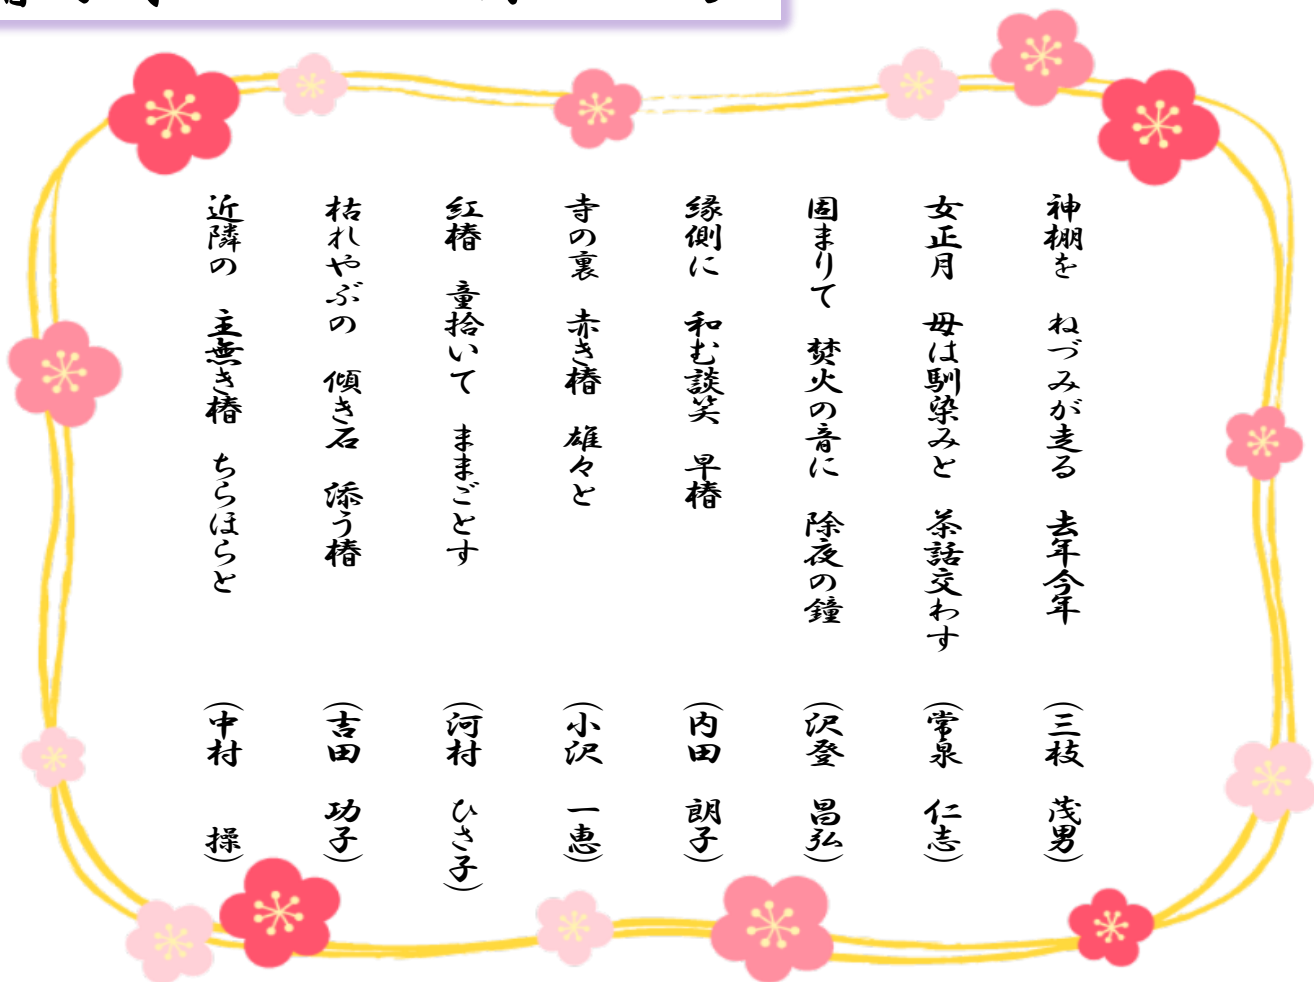 神棚を　ねづみが走る　去年今年　（三枝　茂男）
女正月　母は馴染みと　茶話交わす　（常泉　仁志）
固まりて　焚火の音に　除夜の鐘　（沢登　昌弘）
縁側に　和む談笑　早椿　（内田　朗子）
寺の裏　赤き椿　雄々と　（小沢　一恵）
紅椿　童拾いて　ままごとす　（河村　ひさ子）
枯れやぶの　傾き石　添う椿　（吉田　功子）
近隣の　主無き椿　ちらほらと　（中村　操）